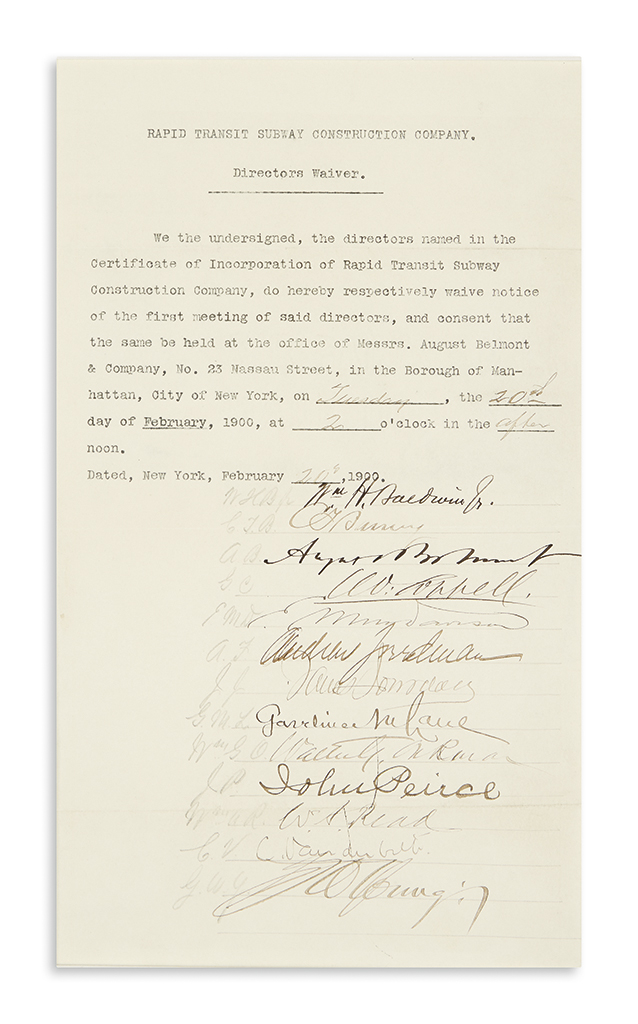 RAPID TRANSIT SUBWAY CONSTRUCTION COMPANY.
Directors Waiver.
We the undersigned, the directors named in the
Certificate of Incorporation of Rapid Transit Subway
Construction Company, do hereby respectively waive notice
of the first meeting of said directors, and consent that
the same be held at the office of Messrs. August Belmont
& Company, No. 23 Nassau Street, in the Borough of Man-
hattan, City of New York, on Tuesday, the 20th
day of February, 1900, at 2 o'clock in the after
noon.
Dated, New York, February 20th, 1900.
Wm H. Baldwin Jr.
A B August Belmont
G C
Andrew Freedman
J J
G M L Gardiner M Lane
Wm G O
J P John Peirce
W. A. Read
C V C. Vanderbilt.
G W Y G W Young.